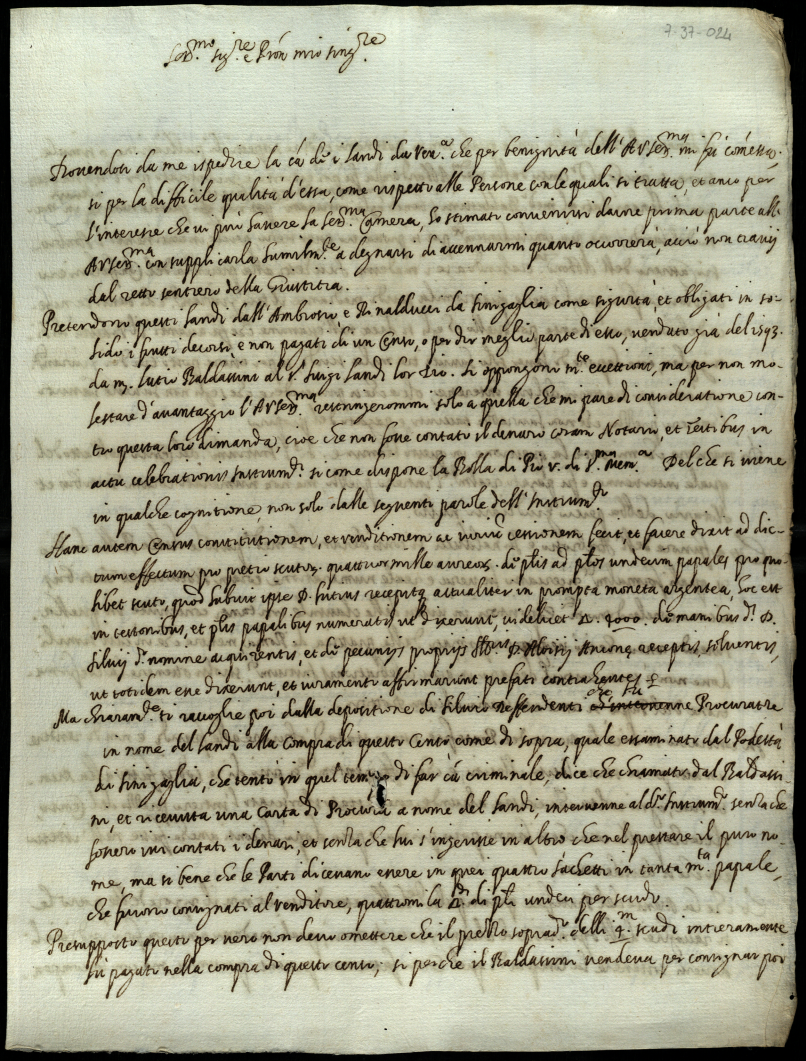 7-37-024
Ser.mo sig.re e Pron mio sing.re
Dovendosi da me ispedire la cã dẽ i Sandi da Ven.a che per benignità dell'A V Ser.ma mi fù comessa,
si per la difficile qualità d'essa, come rispetto alle Persone con le quali si tratta, et anco per
l'interesse che vi può havere la Ser.ma Camera, hò stimato convenirsi darne prima parte all'
A V Ser.ma con supplicarla humilm.te à degnarsi di accennarmi quanto occorrerà, acciò non travij
dal retto sentiero della Giustitia.
Pretendono questi Sandi dall'Ambrosio e Rinalducci da Sinigaglia come sigurtà, et obligati in so-
lido i frutti decorsi, e non pagati di un Censo, o per dir meglio parte di esso, venduto già del 1593.
da m. Lutio Baldassini al s.r Luigi Sandi lor Zio. Si oppongono m.te eccettioni, ma per non mo-
lestare d'avantaggio l'A V Ser.ma restringerommi solo a quella che mi pare di consideratione con-
tro questa loro dimanda, cioè che non fosse contato il denaro coram Notario, et Testibus in
actu celebrationis Instrum.ti si come dispone la Bolla di Pio V. di S.ma Mem.a Del che si viene
in qualche cognitione, non solo dalle seguenti parole dell'Instrum.to
Hanc autem Census constitutionem, et venditionem ac iuriũ cessionem fecit, et facere dixit ad dic-
tum effectum pro pretio scutor. quattuor mille aureor. dẽ plis ad plos undecim papales pro quo-
libet scuto, quos habuit ipse D. Lutius recepitq actualiter in prompta moneta argentea, hoc est
in testonibus, et plis papalibus numeratis ut dixerunt, videlicet Δ. 4000. dẽ manibus d.i D.
Silvij d.o nomine acquirentis, et dẽ pecunijs proprijs D. Aloisij receptis, solventis,
ut totidem esse dixerunt, et iuramento affirmarunt prefati contrahentes
Ma chiaram.te si raccoglie poi dalla depositione di Silvio Procuratore
in nome del Sandi alla Compra di questo Censo come di sopra, quale essaminato dal Podestà
di Sinigaglia, che tentò in quel tempo di far cã criminale, dice che chiamato dal Baldassi-
ni, et ricevuta una Carta di Procura a nome del Sandi, intervenne al d.o Instrum.to senza che
fossero ivi contati i denari, et senza che lui s'ingerisse in altro che nel prestare il puro no-
me, ma si bene che le Parti dicevano essere in quei quattro sachetti in tanta m.ta papale,
che furono consignati al venditore, quattromila Δ.di di pli undeci per scudo.
Presupposto questo per vero non devo omettere che il prezzo soprad.o delli 4.m scudi intieramente
fù pagato nella compra di questo censo; si perche il Baldassini vendeva per consignar poi